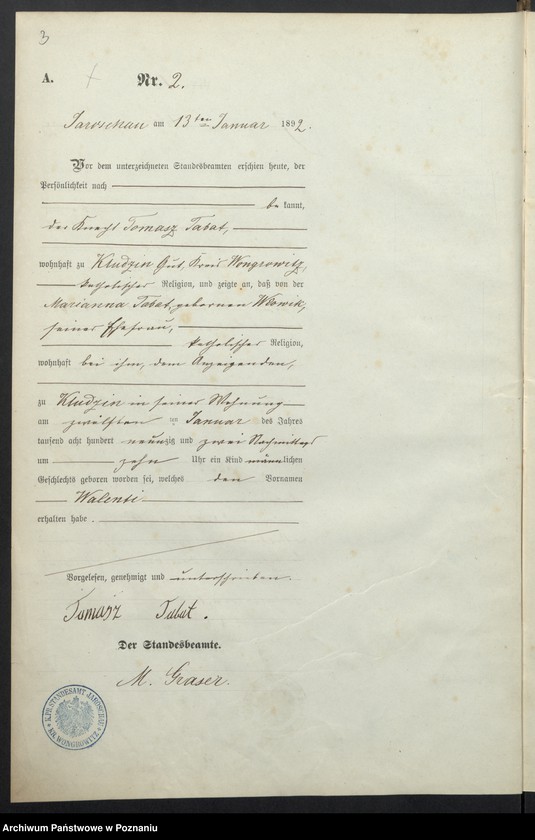 3
A. Nr. 2.
Jaroschau am 13ten Januar 1892.
Vor dem unterzeichneten Standesbeamten erschien heute, der
Persönlichkeit nach
be kannt,
der Knecht Tomasz Tabat,
wohnhaft zu Kludzin Gut, Kreis Wongrowitz,
katholischer Religion, und zeigte an, daß von der
Marianna Tabat, gebornen Wlowik,
seiner Ehefrau,
katholischer Religion,
wohnhaft bei ihm, dem Anzeigenden,
zu Kludzin in seiner Wohnung
am zwölften ten Januar des Jahres
tausend acht hundert neunzig und zwei Nachmittags
um zehn Uhr ein Kind männlichen
Geschlechts geboren worden sei, welches den Vornamen
Walenti
erhalten habe.
Vorgelesen, genehmigt und unterschrieben.
Tomasz Tabat.
Der Standesbeamte.
M. Graser.
K. PR. STANDESAMT JAROSCHAU
KR. WONGROWITZ
Archiwum Państwowe w Poznaniu